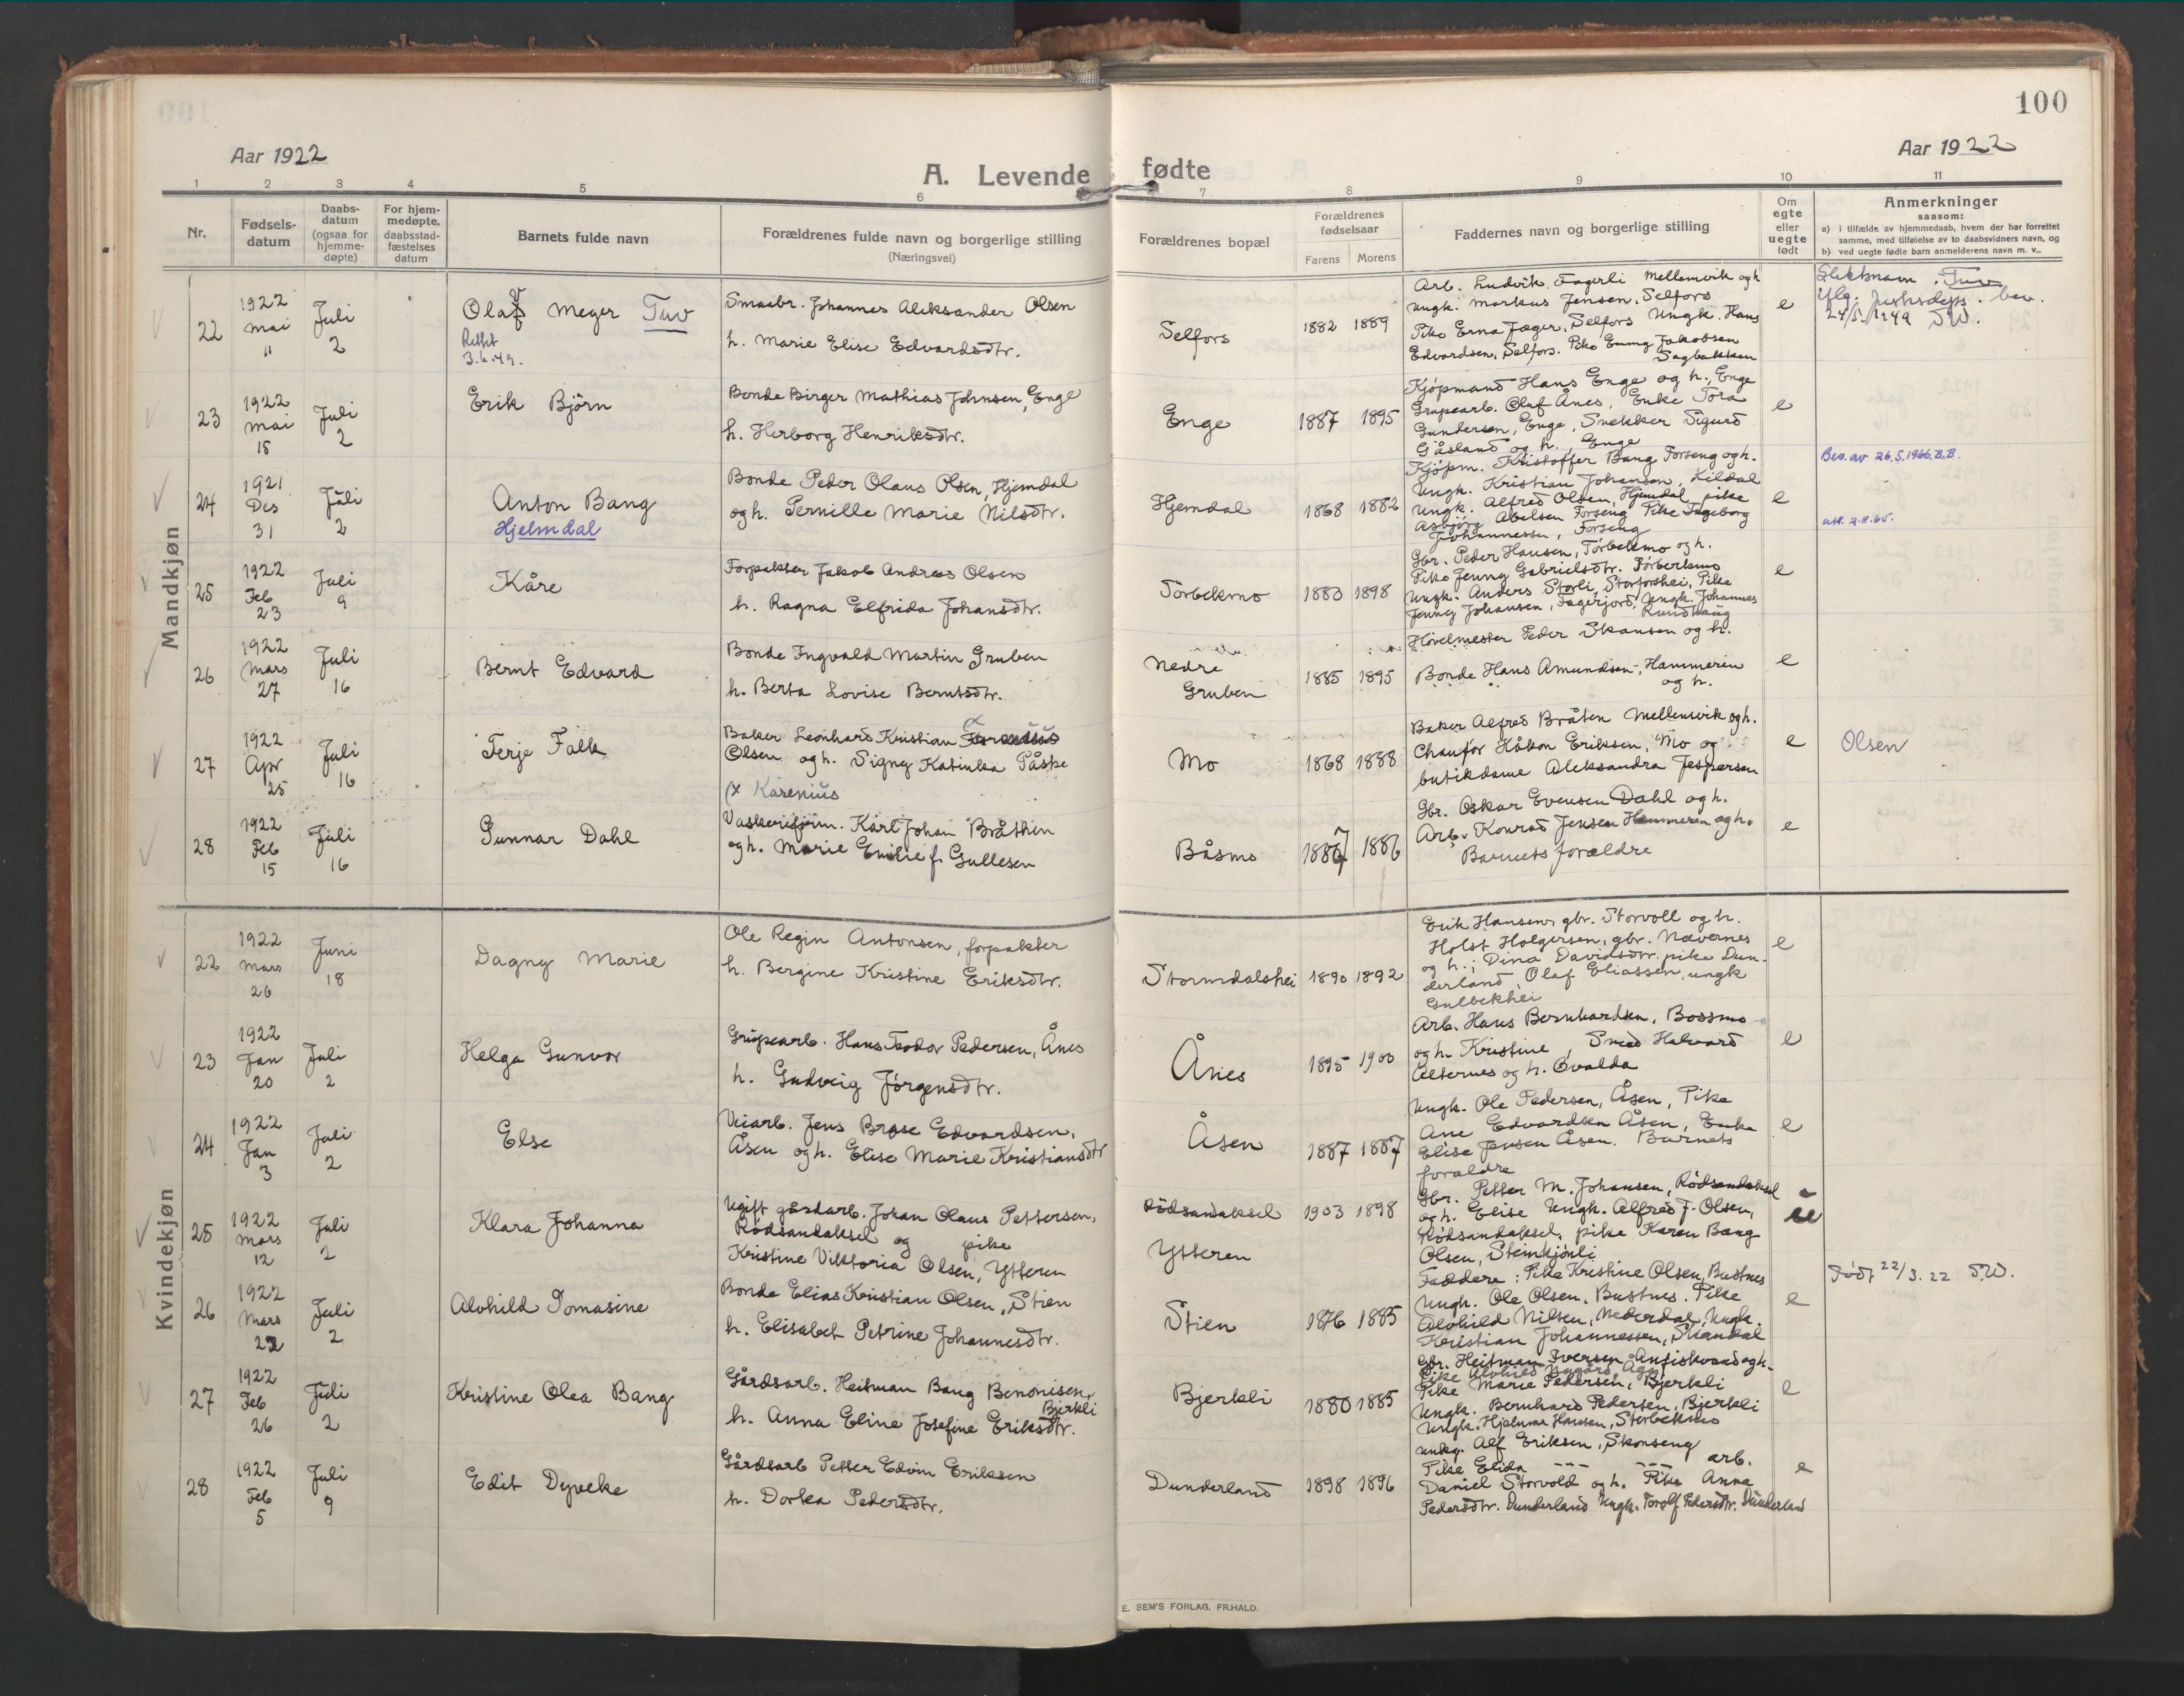 100
Aar 1922
Aar 1922
A. Levende fødte
1 2 3 4 5 6 7 8 9 10 11
Nr.
Fødsels-
datum
Daabs-
datum
(ogsaa for
hjemme-
døpte)
For hjem-
medøpte,
daabsstad-
fæstelses
datum
Barnets fulde navn
Forældrenes fulde navn og borgerlige stilling
(Næringsvei)
Forældrenes bopæl
Forældrenes
fødselsaar
Farens Morens
Faddernes navn og borgerlige stilling
Om
egte
eller
uegte
født
Anmerkninger
saasom:
a) i tilfælde av hjemmedaab, hvem der har forrettet
samme, med tilføielse av to daabsvidners navn, og
b) ved uegte fødte barn anmelderens navn m. v..
Mandkjøn
22
1922
Mai
11
Juli
2
Olaf Meyer Tuv
Rettet
3.6.49.
Smaabr. Johannes Aleksander Olsen
h. Marie Elise Edvardsdtr.
Selfors
1882 1889
Arb. Ludvik Fagerli Mellemvik og h
Ungk. Markus Jensen, Selfors
Pike Erna Jæger, Selfors Ungk. Hans
Edvardsen, Selfors. Pike Emma Jakobsen
Sagbakken
e
Slektsnavn: Tuv
iflg. justisdeps. bev.
24/5. 1949 SW.
23
1922
Mai
15
Juli
2
Erik Björn
Bonde Birger Mathias Johnsen, Enge
h. Herborg Henriksdtr.
Enge
1887 1895
Kjøpmand Hans Enge og h., Enge
Grupearb. Olaf Ånes, Enke Tora
Gundersen, Enge, Snekker Sigurd
Gåsland og h., Enge
e
24
1921
Des
31
Juli
2
Anton Bang
Hjelmdal
Bonde Peder Olaus Olsen, Hjemdal
og h. Pernille Marie Nilsdtr.
Hjemdal
1868 1882
Kjøpm. Kristoffer Bang Forseng og h.
Ungk. Kristian Johansen, Kildal
Ungk. Alfred Olsen, Hjemdal pike
Asbjørg Abelsen Forseng Pike Ingeborg
Johannessen, Forseng
e
Bev. av 26.5.1966. B.B.
att. 2.8.65.
25
1922
Feb
23
Juli
9
Kåre
Forpakter Jakob Andreas Olsen
h. Ragna Elfrida Johansdtr.
Törbekmo
1880 1898
Gbr. Peder Hansen, Törbekmo og h.
Pike Jenny Gabrielsdtr. Törbekmo
Ungk. Anders Storli, Storforshei, Pike
Jenny Johansen, Fagerjord, Ungk. Johannes
Rundhaug
e
26
1922
Mars
27
Juli
16
Bernt Edvard
Bonde Ingvald Martin Gruben
h. Berta Lovise Berntsdtr.
Nedre
Gruben
1885 1895
Høvelmester Peder Skansen og h.
Bonde Hans Amundsen, Hammeren
og h.
e
27
1922
Apr
25
Juli
16
Terje Falk
Baker Leonhard Kristian
Olsen og h. Signy Katinka Påske
(x Karenius
Mo
1868 1888
Baker Alfred Bråten Mellemvik og h.
Chaufør Håkon Eriksen, Mo og
butikdame Aleksandra Jespersen
e
Olsen
28
1922
Feb
15
Juli
16
Gunnar Dahl
Vaskeriform. Karl Johan Bråthen
og h. Marie Emilie f. Gullesen
Båsmo
1887 1886
Gbr. Oskar Evensen Dahl og h.
Arb. Konrad Jensen Hammeren og h.
Barnets forældre
e
Kvindekjøn
22
1922
Mars
26
Juni
18
Dagny Marie
Ole Regin Antonsen, forpakter
h. Bergine Kristine Eriksdtr.
Stormdalshei
1890 1892
Erik Hansen, gbr. Storvoll og h.
Holst Holgersen, gbr. Nævernes
og h.; Dina Davidsdtr. pike Dun-
derland, Olaf Eliassen, ungk
Gulbekhei
e
23
1922
Jan
20
Juli
2
Helga Gunvor
Grupearb. Hans Teodor Pedersen, Ånes
h. Gudveig Jørgensdtr.
Ånes
1895 1900
Arb. Hans Bernhardsen, Bossmo
og h. Kristine, Smed Halvard
Alternes og h. Ovalda
e
24
1922
Jan
3
Juli
2
Else
Veiarb. Jens Brose Edvardsen,
Åsen og h. Elise Marie Kristiansdtr
Åsen
1887 1887
Ungk. Ole Pedersen, Åsen, Pike
Ane Edvardsen Åsen, Enke
Elise Jensen Åsen. Barnets
forældre
e
25
1922
Mars
12
Juli
2
Klara Johanna
Ugift gårdarb. Johan Olaus Pettersen,
Rødsandaksel og pike
Kristine Viktoria Olsen, Ytteren
Rödsandaksel
Ytteren
1903 1898
Gbr. Petter M. Johansen, Rødsandaksel
og h. Elise Ungk. Alfred J. Olsen,
Rødsandaksel, pike Karen Bang
Olsen, Steinkjønli
26
1922
Mars
22
Juli
2
Alvhild Tomasine
Bonde Elias Kristian Olsen, Stien
h. Elisabet Petrine Johannesdtr.
Stien
1876 1885
Faddere: Pike Kristine Olsen, Bustnes
Ungk. Ole Olsen, Bustnes. Pike
Alvhild Nilsen, Nederdal, Ungk.
Kristian Johannessen, Skandal
e
Født 22/3. 22 SW.
27
1922
Feb
26
Juli
2
Kristine Olea Bang
Gårdsarb. Heitman Bang Benonisen,
Bjerkli
h. Anna Eline Josefine Eriksdtr.
Bjerkli
1880 1885
Gbr. Heitman Iversen Anfiskvand og h.
Pike Marie Pedersen, Bjerkli
Ungk. Bernhard Pedersen, Bjerkli
Ungk. Hjalmar Hansen, Storbekmo
e
28
1922
Feb
5
Juli
9
Edit Dyveke
Gårdsarb Petter Edvin Eriksen
h. Dorka Pedersdtr.
Dunderland
1898 1896
Ungk. Alf Eriksen, Skonseng
Pike Elida --- --- arb.
Daniel Storvold og h. Pike Anna
Pedersdtr. Dunderland Ungk. Torolf Pedersdtr. Dunderland
e
E. SEM'S FORLAG, FR.HALD.